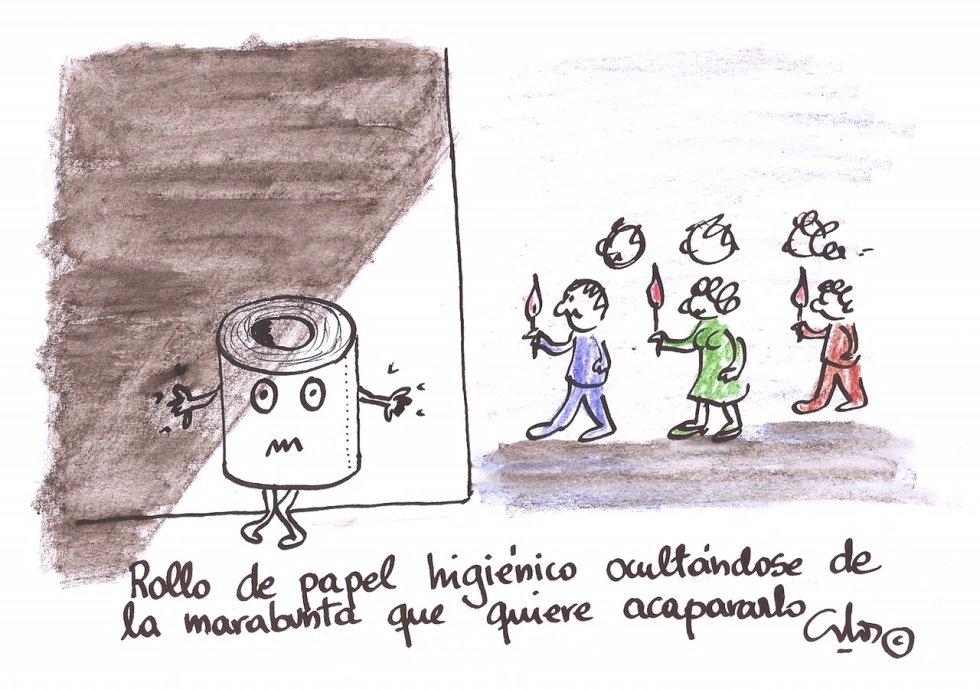 Rollo de papel higiénico ocultándose de
la marabunta que quiere acapararlo
©